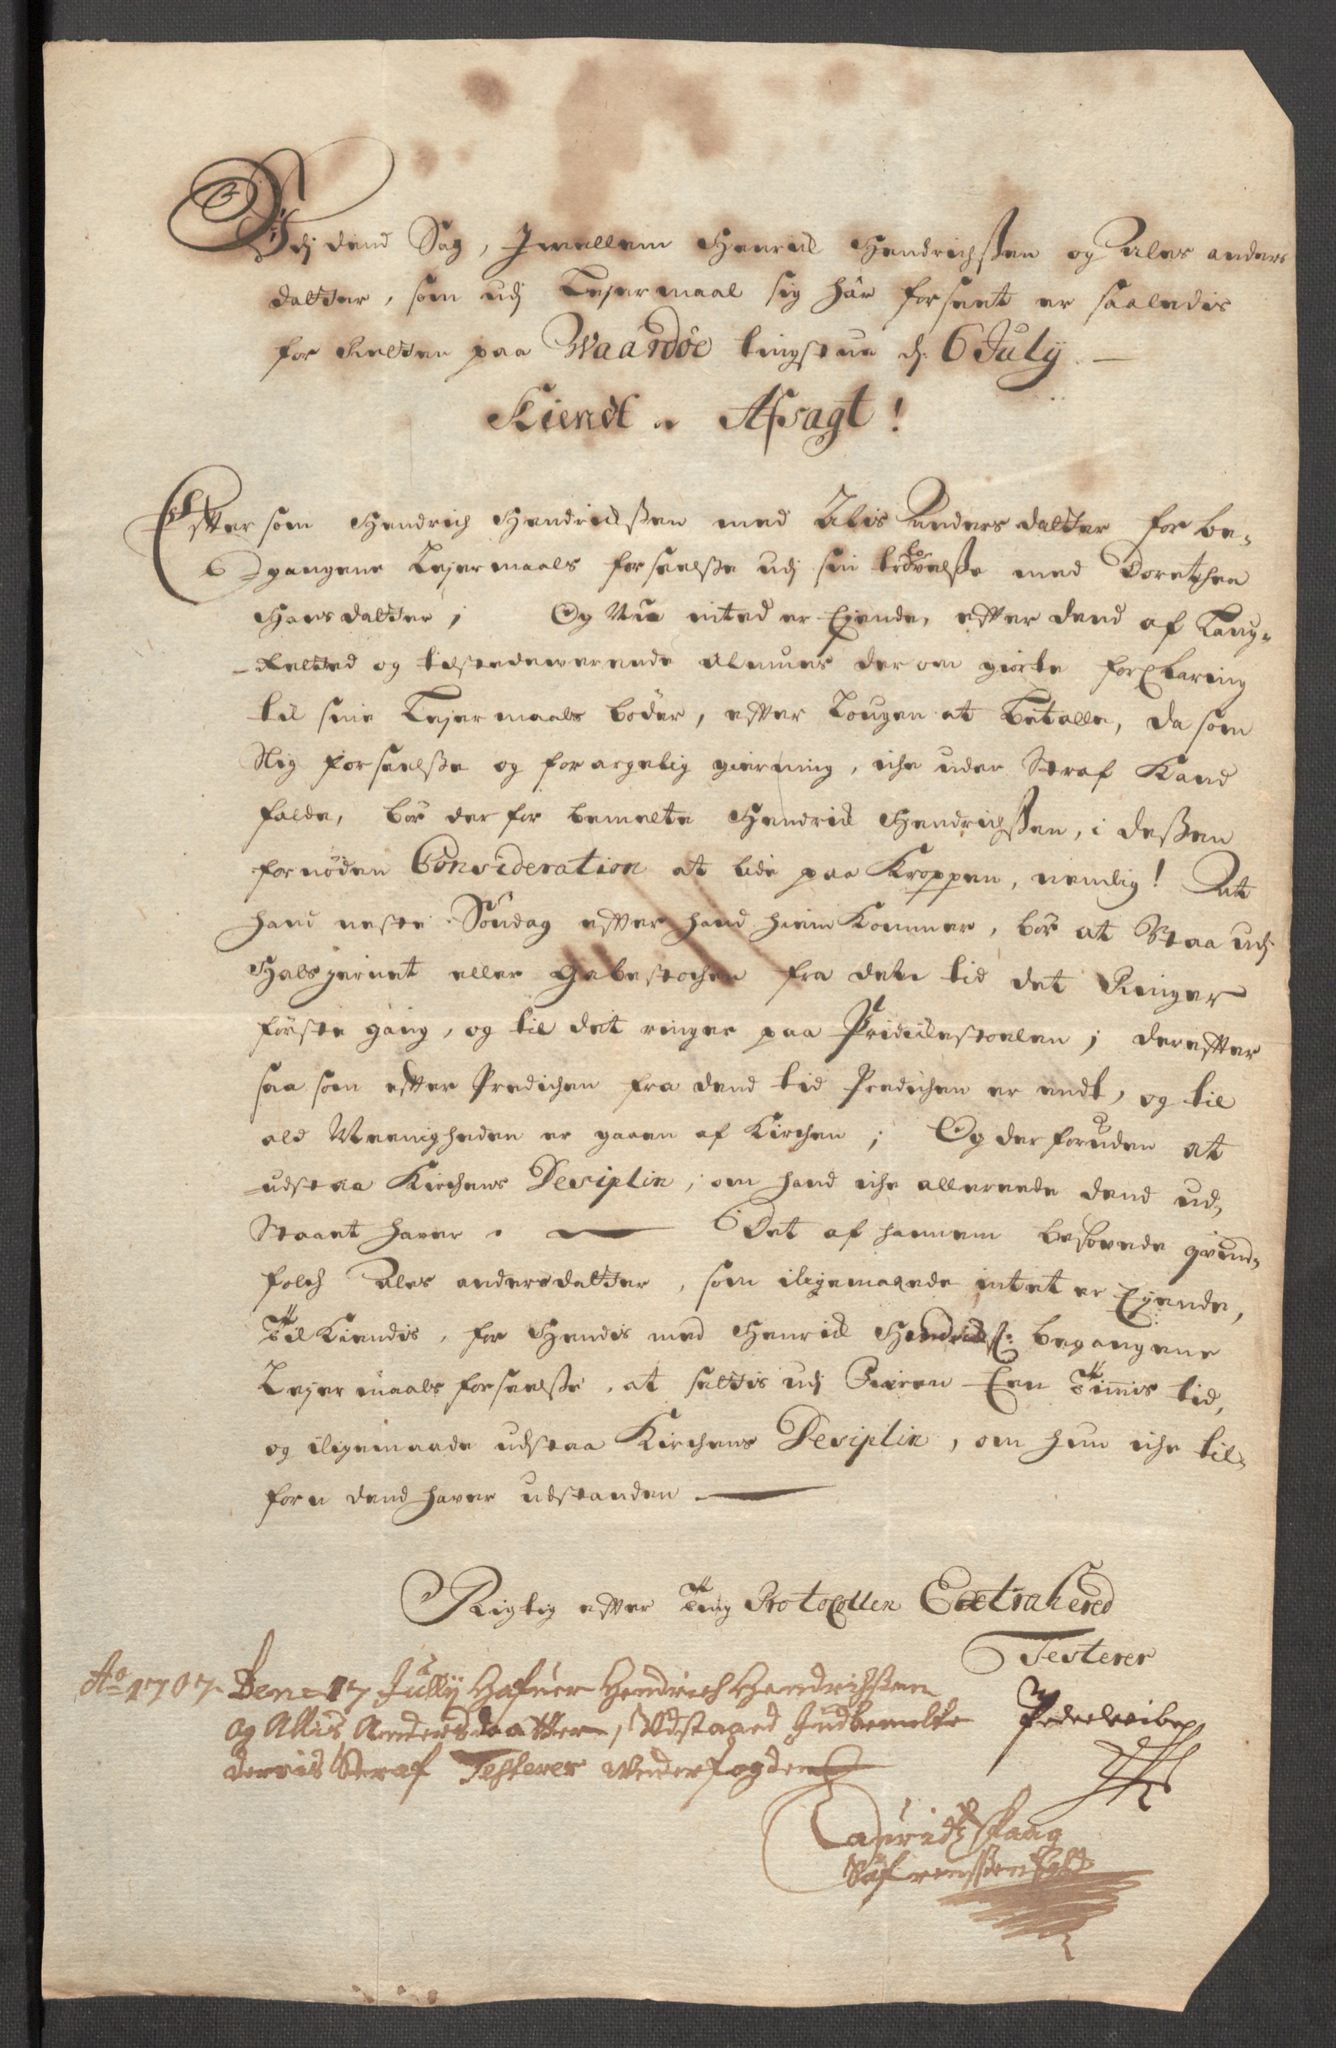 Udj dend Sag, Imellem Henrich Hendrichssen og Ales anders
datter, som udj Lejermaal sig har forseet er saaledis
for Retten paa Waardøe tingstue d: 6 July
Kiendt a Afsagt!
Efftersom Hendrich Hendrichssen med Alis Anders datter for be-
gangene Lejermaals forseelsse udj sin trolovelsse med Dorethea
Hans datter; Og Nu inted er Eyende, effter dend af Laug-
Retted og tilstedewerende almues der om giorte forklaring
til sine Lejermaals bøder, effter Lougen at betalle, da som
slig forseelsse og forargelig gierning, iche uden Straf Kand
falde, bør der for bemelte Hendrich Hendrichssen, i dessen
fornøden Consideration at lide paa Kroppen, nemlig! At
hand neste Søndag effter hand hiem Kommer, bør at Staa udj
Halsjernet eller Gabestochen fra den tid det Ringer
første gang, og til det ringer paa Prediche stoelen; dereffter
saa som effter Predichen fra dend tid Predichen er endt, og til
ald Meenigheden er gaaen af Kirchen; Og der foruden at
udstaa Kirchens Desiplin, om hand iche allereede dend ud-
Staaet haver. Det af hannem besovede quind-
folch Ales andersdatter, som iligemaade intet er Eyende,
Til Kiendis, for Hendis med Henrich Hendrichs: begangene
Lejermaals forseelsse, at settis udj Garen Een Timis tid,
og iligemaade udstaa Kirchens Desiplin, om hun iche til-
forn dend haver udstanden
Rigtig effter Ting Protocollen Extrahered
Testerer
Ao 1707 Den 17 Jully Hafuer Hendrich Hendrichssen
og Allis Andersdaatter, Udstaaed Indbemelte
derris Straf Testerer Under fogden
Lauridtz